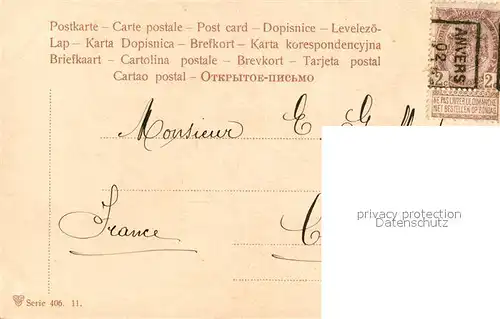 Postkarte – Carte postale – Post card – Dopisnice – Levelező-
Lap – Karta Dopisnica – Brefkort – Karta korespondencyjna
Briefkaart – Cartolina postale – Brevkort – Tarjeta postal
Cartao postal – Открытое-письмо
ANVERS
02
2
NE PAS LIVRER LE DIMANCHE
NIET BESTELLEN OP ZONDAG
Monsieur E. G
privacy protection
Datenschutz
France C
Serie 406. 11.